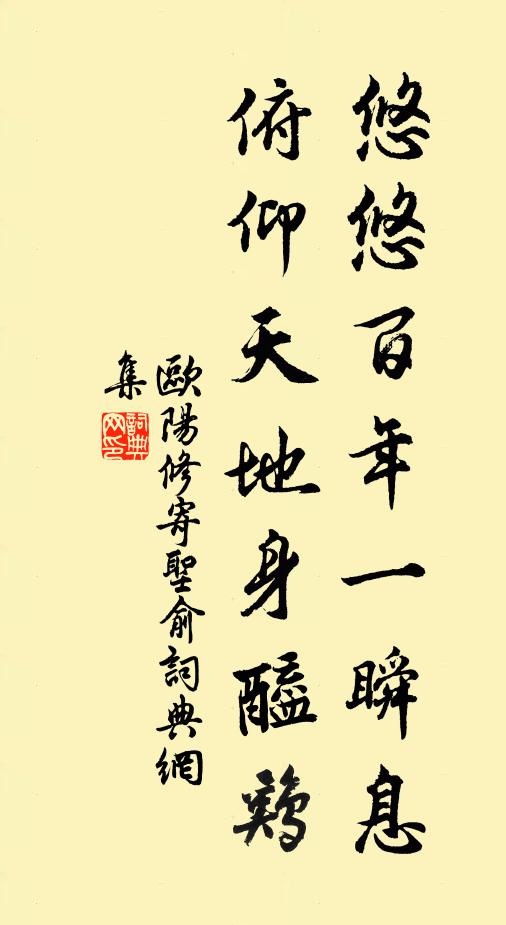 悠悠百年一瞬息
俯仰天地身醯鷄
歐陽修寄聖俞詞典網
集
詞典网印